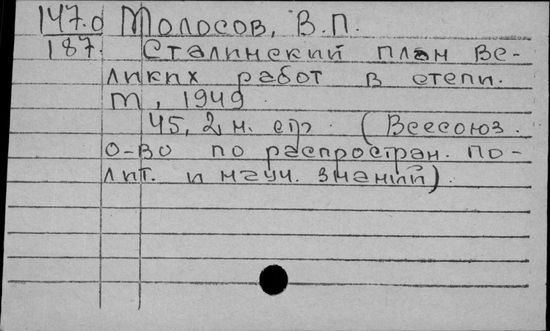 147.0 Молосов, В.П.
187. Сталинский план ве-
ликих работ в степи.
М, 1949.
45, 2 н. стр. (Всесоюз.
о-во по распростран. по-
лит. и науч. знаний).